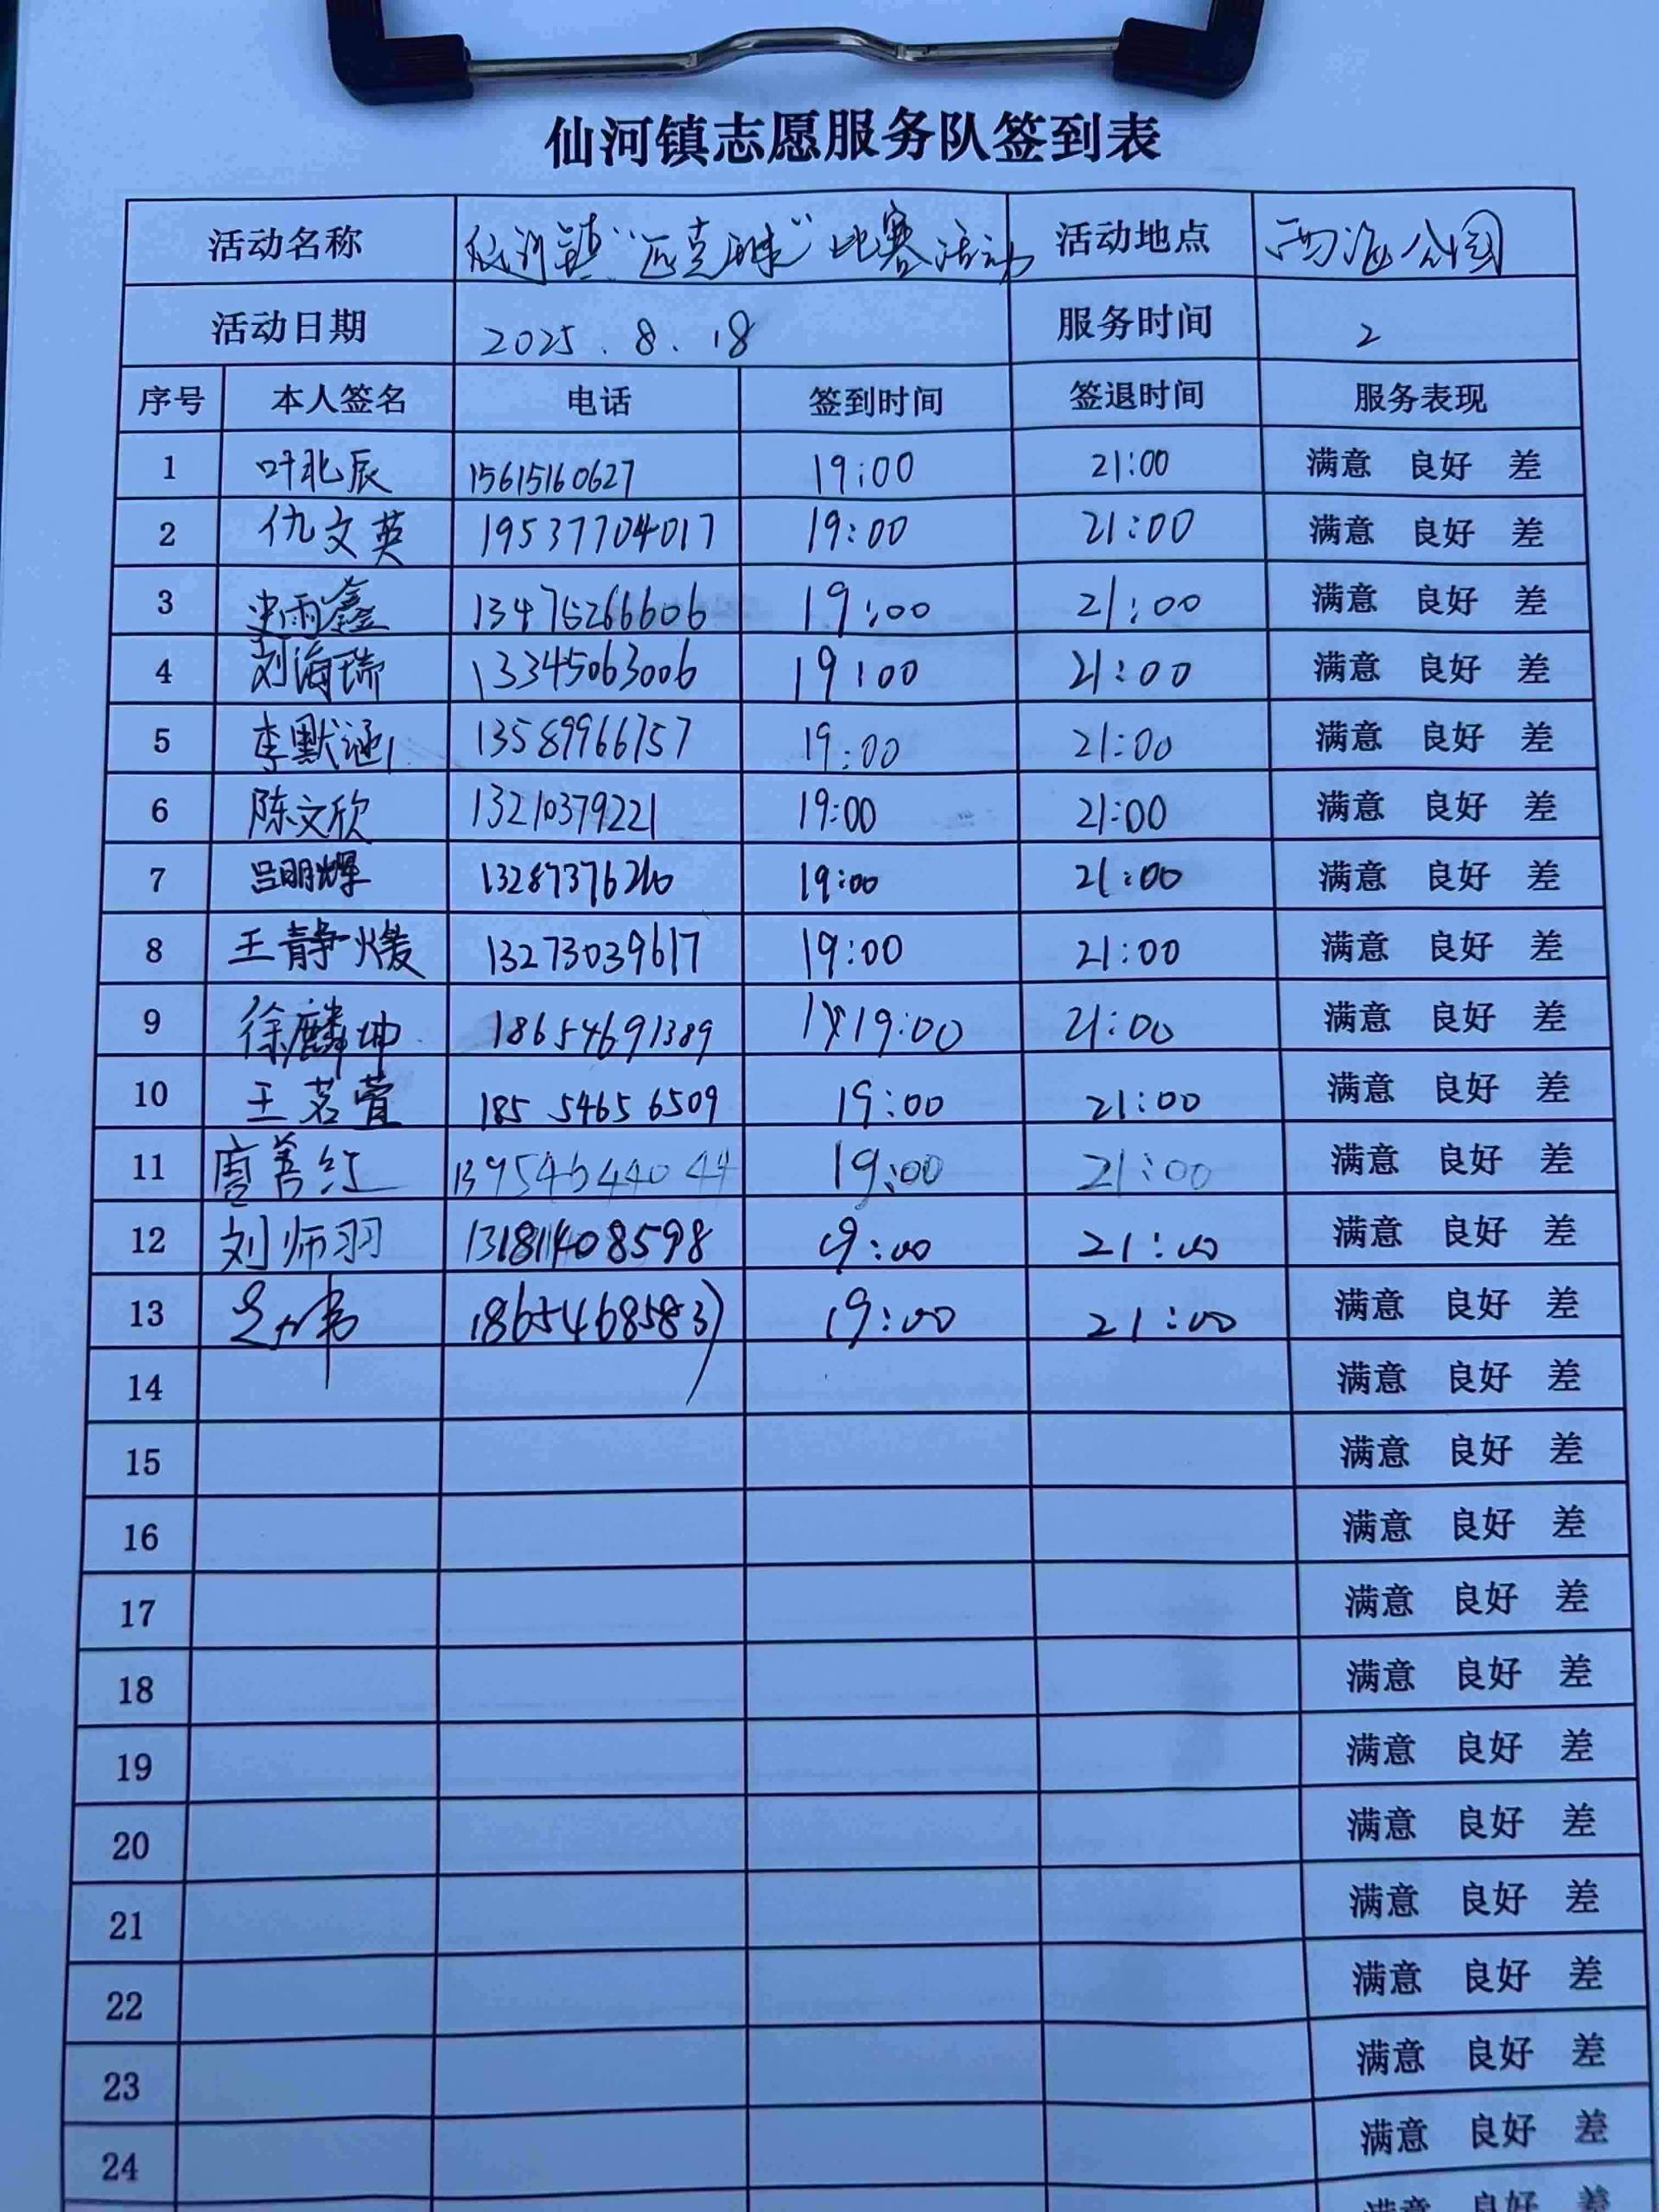 仙河镇志愿服务队签到表
活动名称 仙河镇“匹克球”比赛活动 活动地点 西海公园
活动日期 2025.8.18 服务时间 2
序号 本人签名 电话 签到时间 签退时间 服务表现
1 叶北辰 15615160627 19:00 21:00 满意 良好 差
2 仇文英 19537704017 19:00 21:00 满意 良好 差
3 史雨鑫 13475266606 19:00 21:00 满意 良好 差
4 刘海瑞 13345063006 19:00 21:00 满意 良好 差
5 李默涵 13589966757 19:00 21:00 满意 良好 差
6 陈文欣 13210379221 19:00 21:00 满意 良好 差
7 吕明辉 19:00 21:00 满意 良好 差
8 王静煖 13273039617 19:00 21:00 满意 良好 差
9 徐麟坤 18654691389 19:00 21:00 满意 良好 差
10 王茗萱 185 5465 6509 19:00 21:00 满意 良好 差
11 善红 13954644044 19:00 21:00 满意 良好 差
12 刘师羽 13181408598 19:00 21:00 满意 良好 差
13 18654685837 19:00 21:00 满意 良好 差
14 满意 良好 差
15 满意 良好 差
16 满意 良好 差
17 满意 良好 差
18 满意 良好 差
19 满意 良好 差
20 满意 良好 差
21 满意 良好 差
22 满意 良好 差
23 满意 良好 差
24 满意 良好 差
满意 良好 差